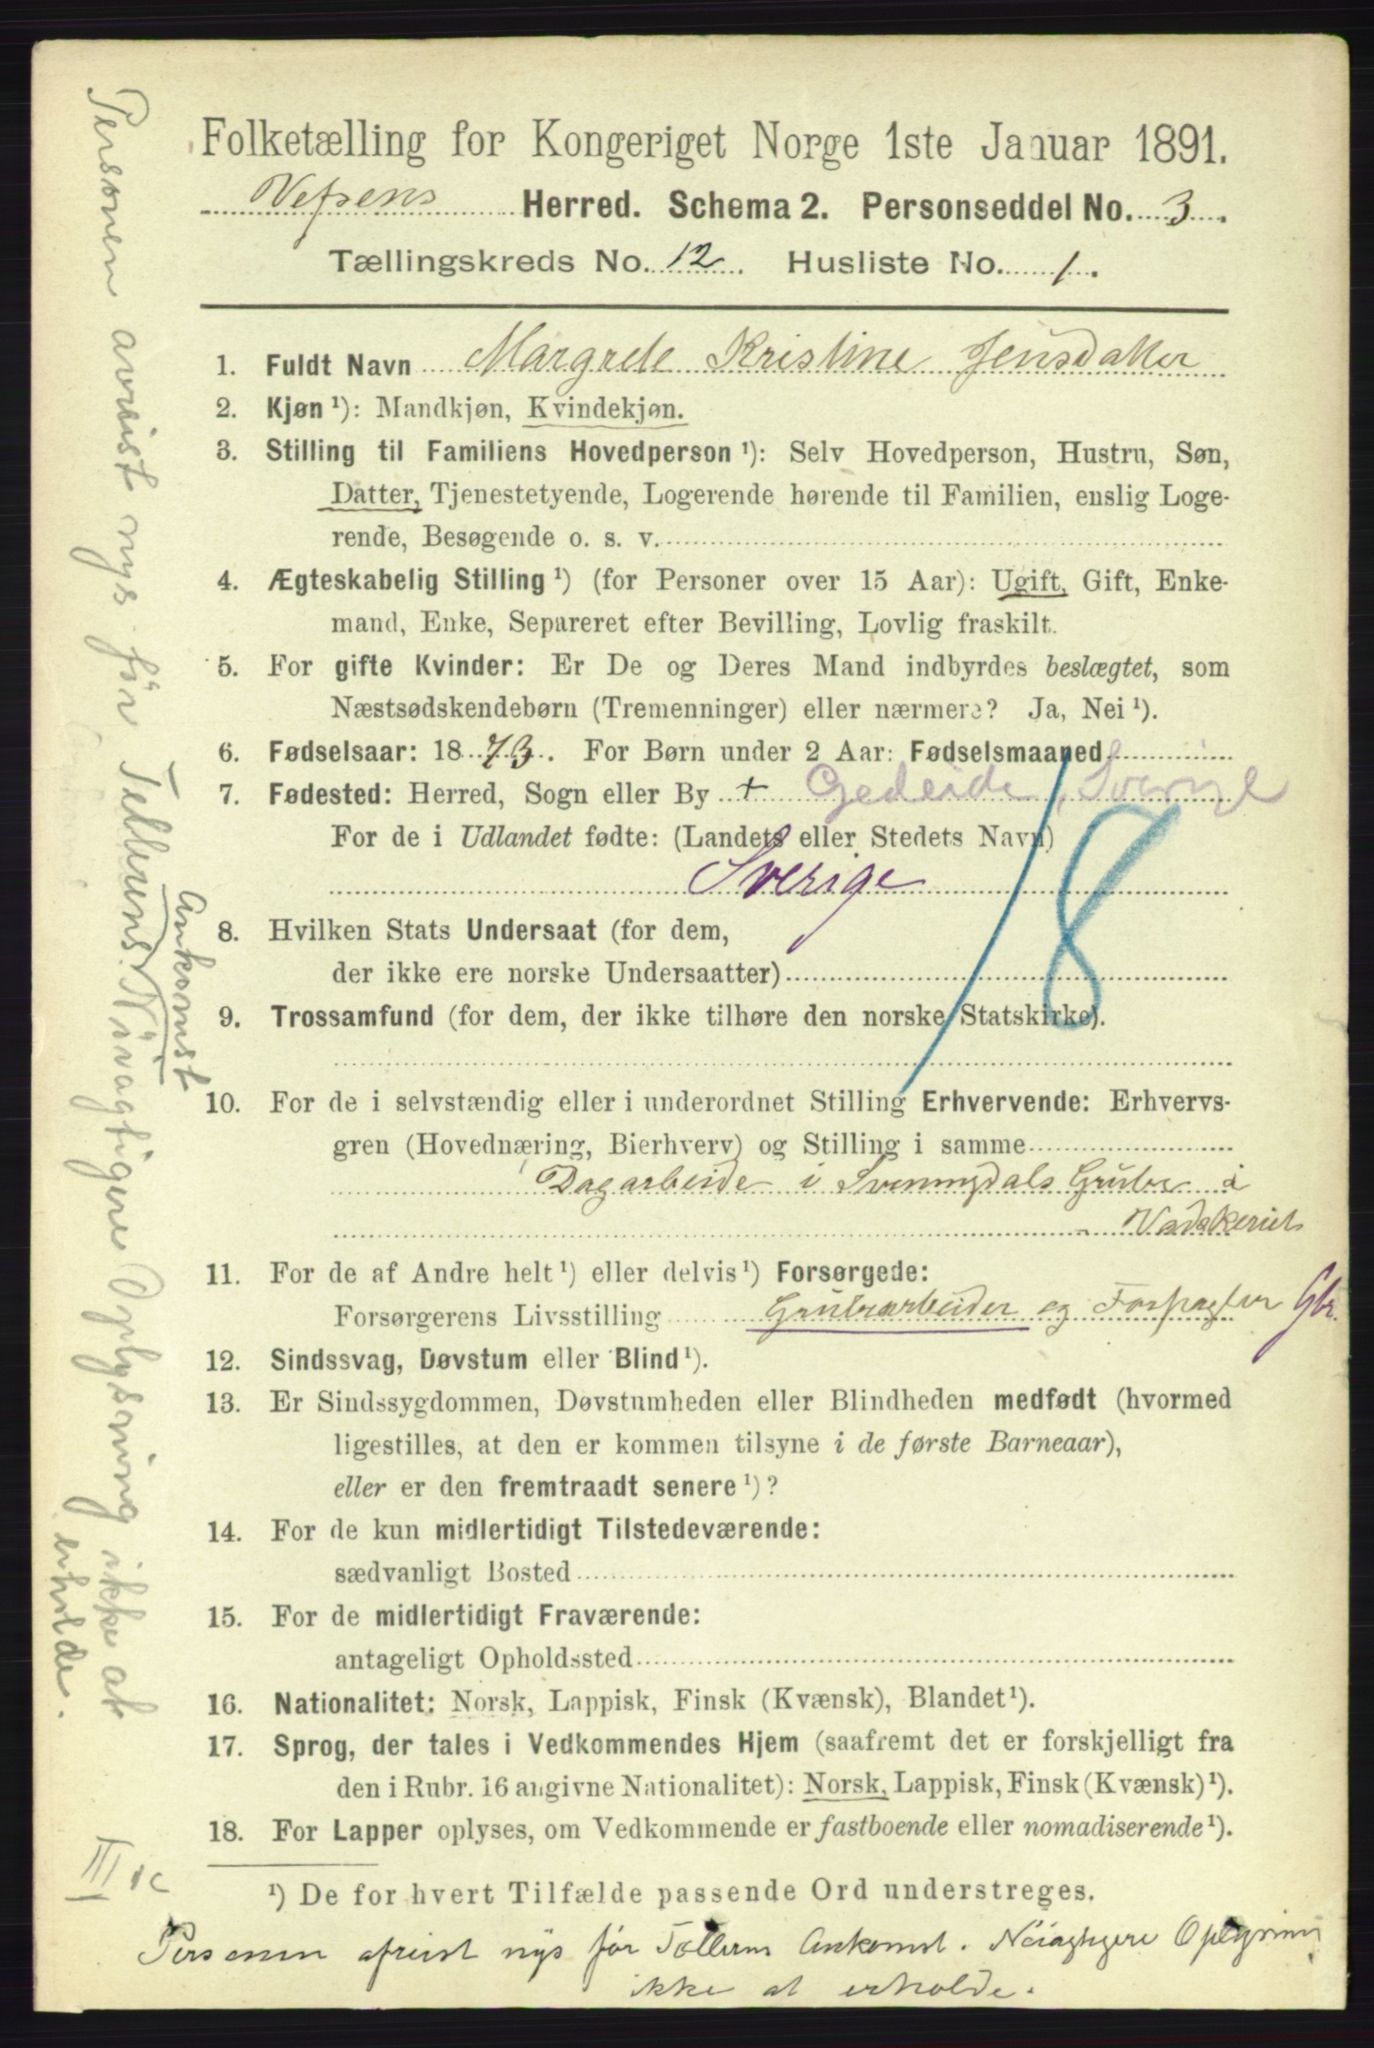 Folketælling for Kongeriget Norge 1ste Januar 1891.
Vefsens Herred. Schema 2. Personseddel No. 3.
Tællingskreds No. 12. Husliste No. 1.
1. Fuldt Navn Margrete Kristine Jensdatter
2. Kjøn ¹): Mandkjøn, Kvindekjøn.
3. Stilling til Familiens Hovedperson ¹): Selv Hovedperson, Hustru, Søn,
Datter, Tjenestetyende, Logerende hørende til Familien, enslig Loge-
rende, Besøgende o. s. v.
4. Ægteskabelig Stilling ¹) (for Personer over 15 Aar): Ugift, Gift, Enke-
mand, Enke, Separeret efter Bevilling, Lovlig fraskilt.
5. For gifte Kvinder: Er De og Deres Mand indbyrdes beslægtet, som
Næstsødskendebørn (Tremenninger) eller nærmere? Ja, Nei ¹).
6. Fødselsaar: 1873. For Børn under 2 Aar: Fødselsmaaned
7. Fødested: Herred, Sogn eller By + Gedeide, Sverige
For de i Udlandet fødte: (Landets eller Stedets Navn)
Sverige
18
8. Hvilken Stats Undersaat (for dem,
der ikke ere norske Undersaatter)
9. Trossamfund (for dem, der ikke tilhøre den norske Statskirke).
10. For de i selvstændig eller i underordnet Stilling Erhvervende: Erhvervs-
gren (Hovednæring, Bierhverv) og Stilling i samme
Dagarbeide i Svenningdals Grube i
Vadskeriet
11. For de af Andre helt ¹) eller delvis ¹) Forsørgede:
Forsørgerens Livsstilling Grubearbeider og Forpagter Gbr.
12. Sindssvag, Døvstum eller Blind ¹).
13. Er Sindssygdommen, Døvstumheden eller Blindheden medfødt (hvormed
ligestilles, at den er kommen tilsyne i de første Barneaar),
eller er den fremtraadt senere ¹)?
14. For de kun midlertidigt Tilstedeværende:
sædvanligt Bosted
15. For de midlertidigt Fraværende:
antageligt Opholdssted
16. Nationalitet: Norsk, Lappisk, Finsk (Kvænsk), Blandet ¹).
17. Sprog, der tales i Vedkommendes Hjem (saafremt det er forskjelligt fra
den i Rubr. 16 angivne Nationalitet): Norsk, Lappisk, Finsk (Kvænsk) ¹).
18. For Lapper oplyses, om Vedkommende er fastboende eller nomadiserende ¹).
¹) De for hvert Tilfælde passende Ord understreges.
Personen afreist nys før Tællerens Ankomst. Nöiagtigere Oplysning
ikke at erholde.
Personen avreist nys før Tellerens Nöiagtigere Oplysning ikke at
Ankomst
erholde.